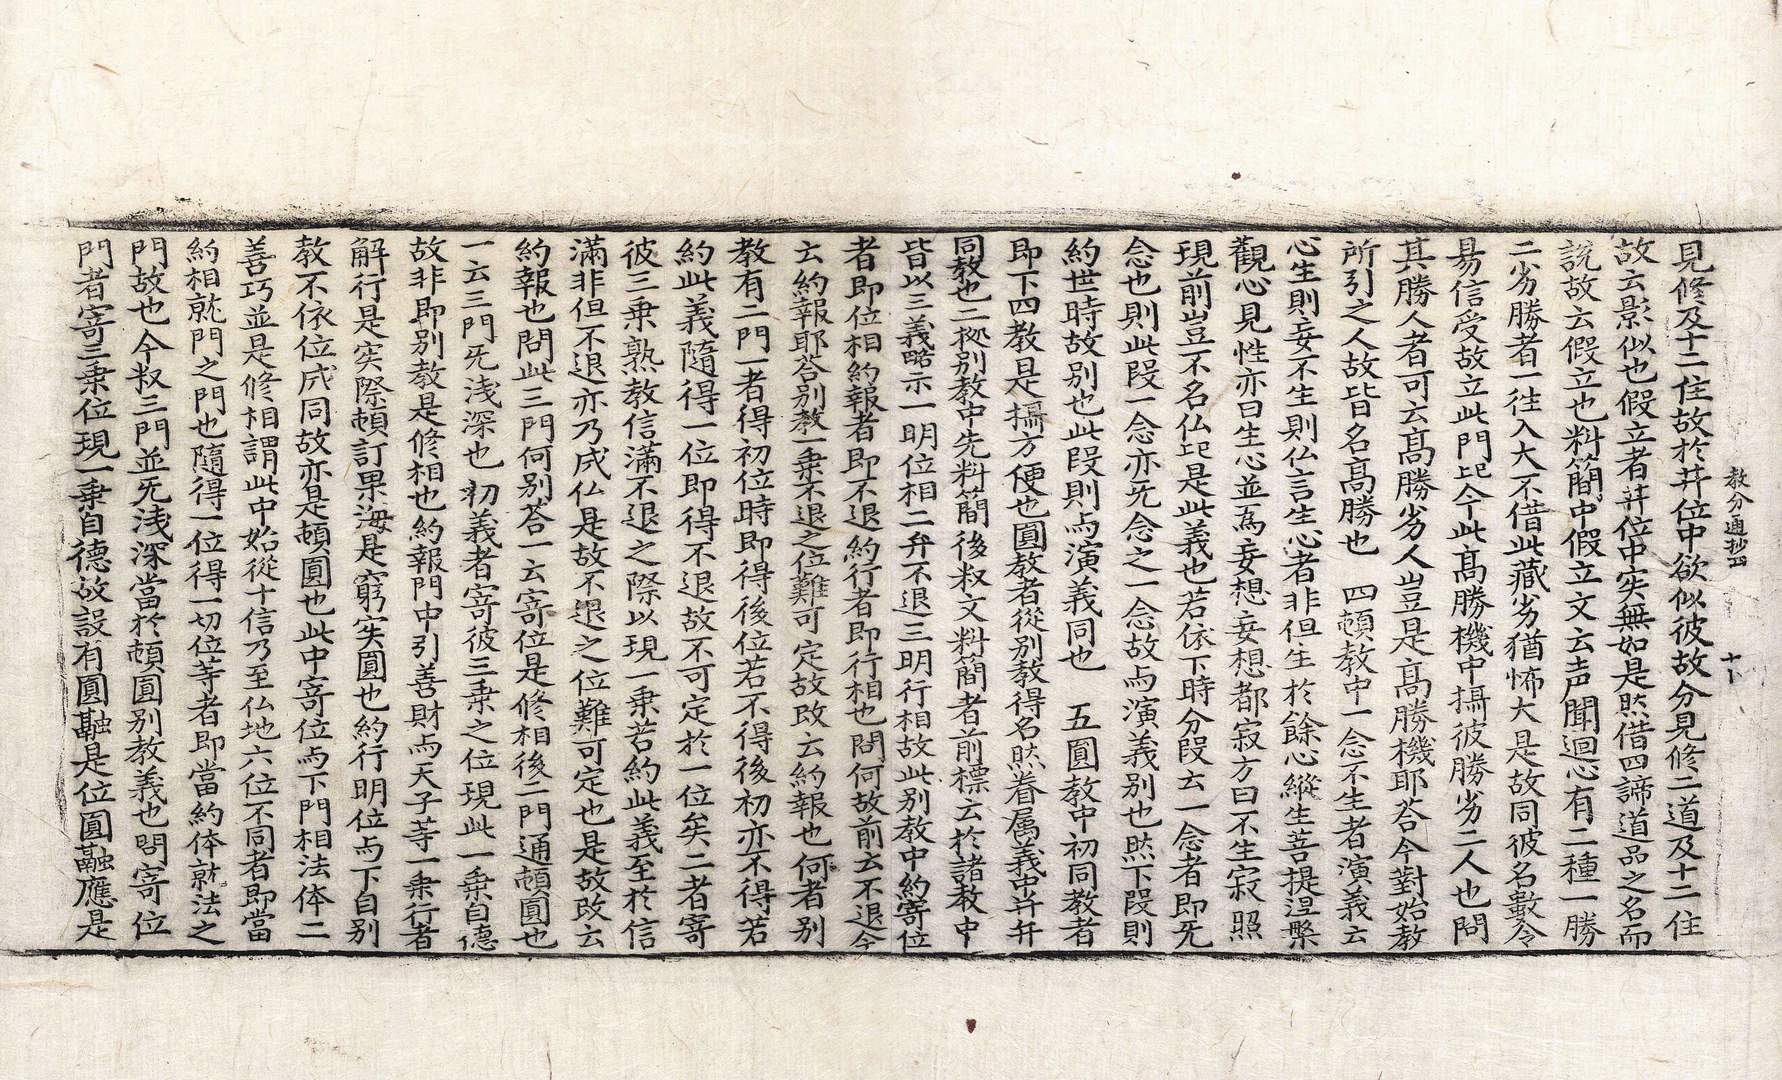 教分通抄四　十卜
見修及十二住故於幷位中欲似彼故分見修二道及十二住
故云影似也假立者幷位中宲無如是㸐借四諦道品之名而
說故云假立也料簡中假立文云声聞迴心有二種一勝
二劣勝者一徃入大不借此藏劣猶怖大是故同彼名數令
易信受故立此門㠯今此髙勝機中攝彼勝劣二人也問
其勝人者可云髙勝劣人豈是髙勝機耶荅今對始教
所引之人故皆名髙勝也　四頓教中一念不生者演義云
心生則妄不生則仏言生心者非但生於餘心縱生菩提涅槃
觀心見性亦曰生心並為妄想妄想都寂方曰不生寂照
現前豈不名仏㠯是此義也若依下時分段云一念者即旡
念也則此段一念亦旡念之一念故与演義別也㸐下段則
約世時故別也此段則与演義同也　五圓教中初同教者
即下四教是攝方便也圓教者從別教得名㸐眷属義中幷幷
同教也二㧣別教中先料簡後敘文料簡者前標云於諸教中
皆以三義略示一明位相二弁不退三明行相故此別教中約寄位
者即位相約報者即不退約行者即行相也問何故前玄不退今
云約報耶荅別教一乗不退之位難可定故改云約報也何者別
教有二門一者得初位時即得後位若不得後初亦不得若
約此義隨得一位即得不退故不可定於一位矣二者寄
彼三乗熟教信滿不退之際以現一乗若約此義至於信
滿非但不退亦乃成仏是故不退之位難可定也是故改云
約報也問此三門何別荅一云寄位是修相後二門通頓圓也
一云三門旡浅深也初義者寄彼三乗之位現此一乗自德
故非即別教是修相也約報門中引善財与天子等一乗行者
解行是宲際頓訂果海是窮宲圓也約行明位与下自別
教不依位成同故亦是頓圓也此中寄位与下門相法体二
善巧並是修相謂此中始從十信乃至仏地六位不同者即當
約相就門之門也隨得一位得一切位等者即當約体就法之
門故也今敘三門並旡浅深當扵頓圓別教義也問寄位
門者寄三乗位現一乗自德故設有圓融是位圓融應是